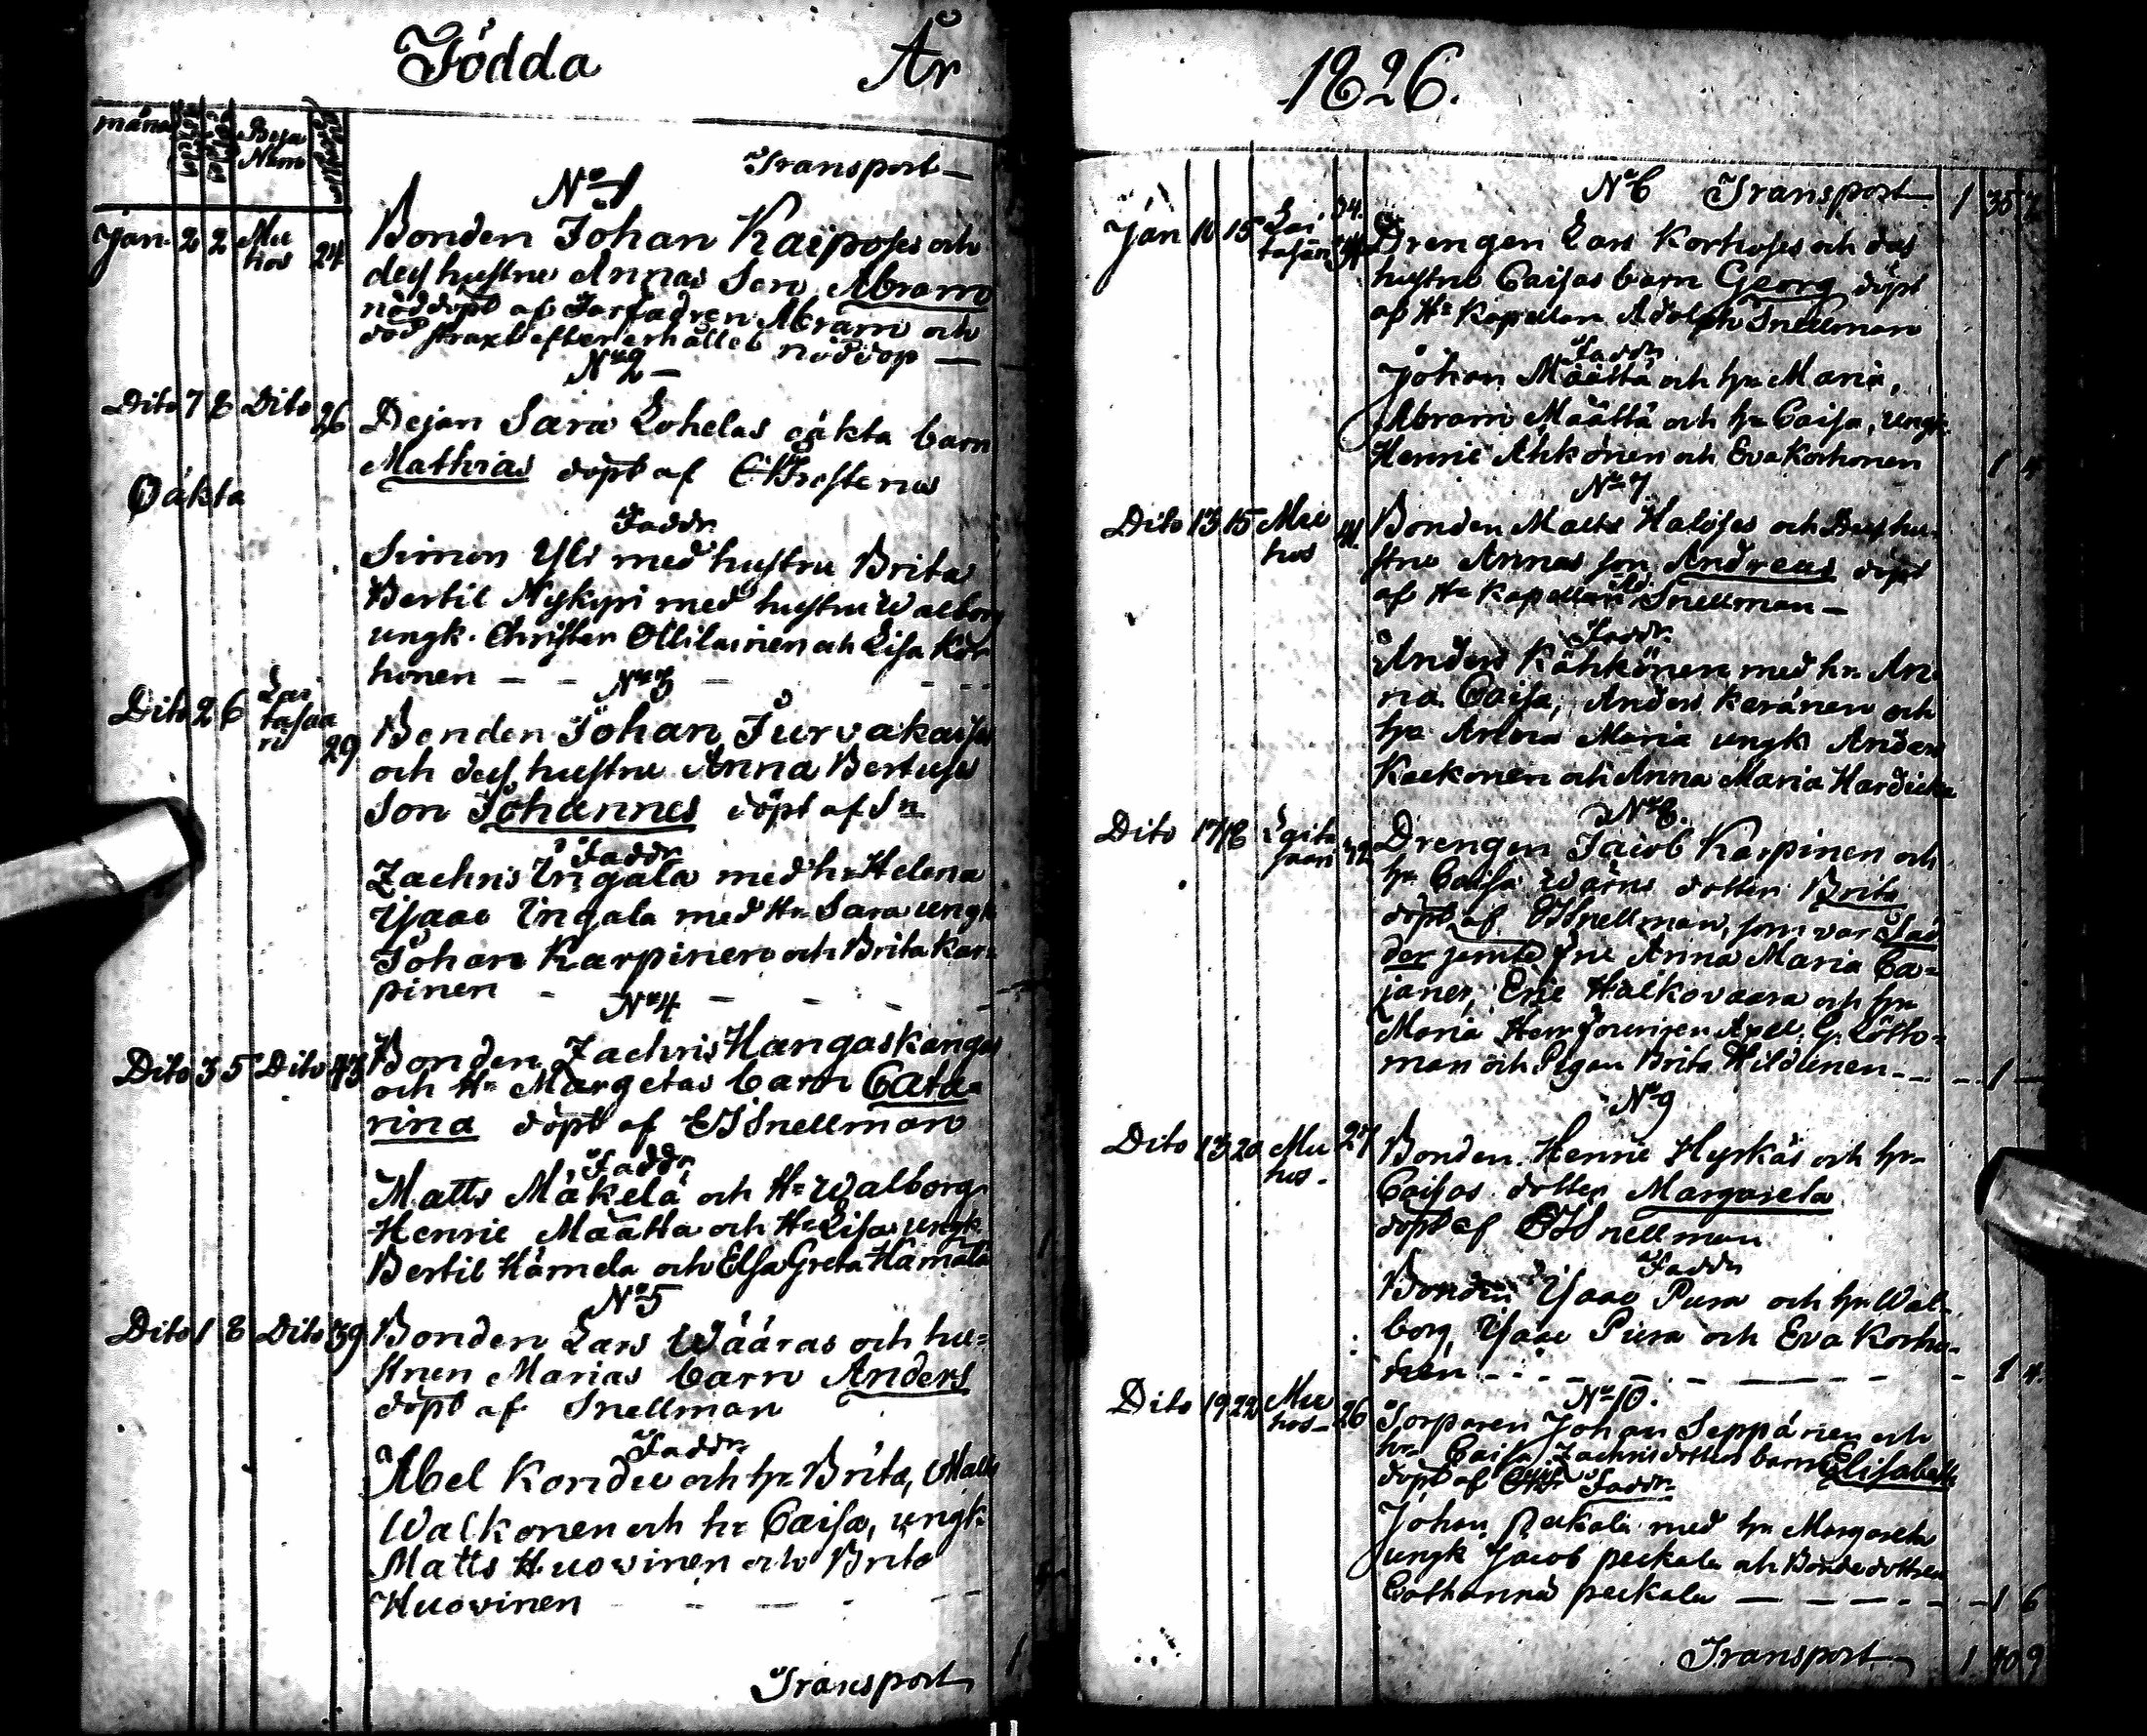 Födda År
måna Bya Nam
Transport
No 1
Jan. 2 2 Mu hos 24
Bonden Johan Kaiposes och
dess hustru Annas Son Abram
nöddöpt af Farfadren Abram och
död straxt efter erhållet nöddop
No 2
Dito 7 8 Dito 26
Dejan Sara Lohelas oäkta barn
Mathias döpt af
Oäkta
Faddr
Simon Yli med hustru Brita
Bertil Nykyri med hustru Walborg
ungk. Christer Ollilainen och Lisa Kor
honen
No 3
Dito 2 6 Lai tasaa ri 29
Bonden Johan Turvakaises
och dess hustru Anna Bertuses
Son Johannes döpt af Sn
Faddr
Zachris Ingala med hr Helena
Isaac Ingala med Hr Sara ungk
Johan Karpinen och Brita Kar=
pinen
No 4
Dito 3 5 Dito 43
Bonden Zachris Hangaskangas
och Hr Margetas barn Cata=
rina döpt af Snellman
Faddr
Matts Mäkelä och Hr Walborg
Henric Määtta och Hr Lisa ungk
Bertil Hämela och Elsa Greta Hämälä
No 5
Dito 1 8 Dito 39
Bonden Lars Wääras och hu=
strun Marias barn Anders
döpt af Snellman
Faddr
Abel Kondu och hr Brita, Matts
Walkonen och hr Caisa, ungk
Matts Huovinen och Brita
Huovinen
Transport
1826.
No 6 Transport 1 35
Jan 10 15 Lai tasari 34
Drengen Lars Korhoses och des
hustru Caisas barn Georg döpt
af Hr Kapellan Adolph Snellman
Faddr
Johan Määttä och hr Maria,
Abram Määttä och hr Caisa, ungk
Henric Ahkonen och Eva Korhonen 1 4
No 7
Dito 13 15 Mu hos 41
Bonden Matts Haloses och Dess hu
stru Annas son Andreas döpt
af Hr Kapellan Ad. Snellman
Faddr
Anders Kähkönen med hr An
na Caisa, Anders Keränen och
hr Anna Maria ungk Anders
Kackonen och Anna Maria Hardicka
No 8.
Dito 17 18 Laita saari 32
Drengen Jacob Karpinen och
hr Caisa Wärns dotter Brita
döpt af Snellman, som var Fad
der jemte Fru Anna Maria Ca=
janer, Eric Halkovaara och hr
Maria Herr Axel. G. Lotto=
man och Pigan Brita Hildunen 1
No 9
Dito 13 20 Mu hos. 27
Bonden Henric Hyrkäs och hr
Caisas dotter Margareta
döpt af Snellman
Faddr
Bonden Isaac Pura och hr Wal
borg, Isaac Pura och Eva Korho
nen 1 4
No 10.
Dito 19 22 Mu hos 26
Torparen Johan Seppänen och
hr Caisa Zachrisdotters barn Elisabeth
döpt af Faddr
Johan Peckala med hr Margareta
ungk Jacob peckala och Bondedottren
Catharina peckala 1 6
Transport 1 40 9